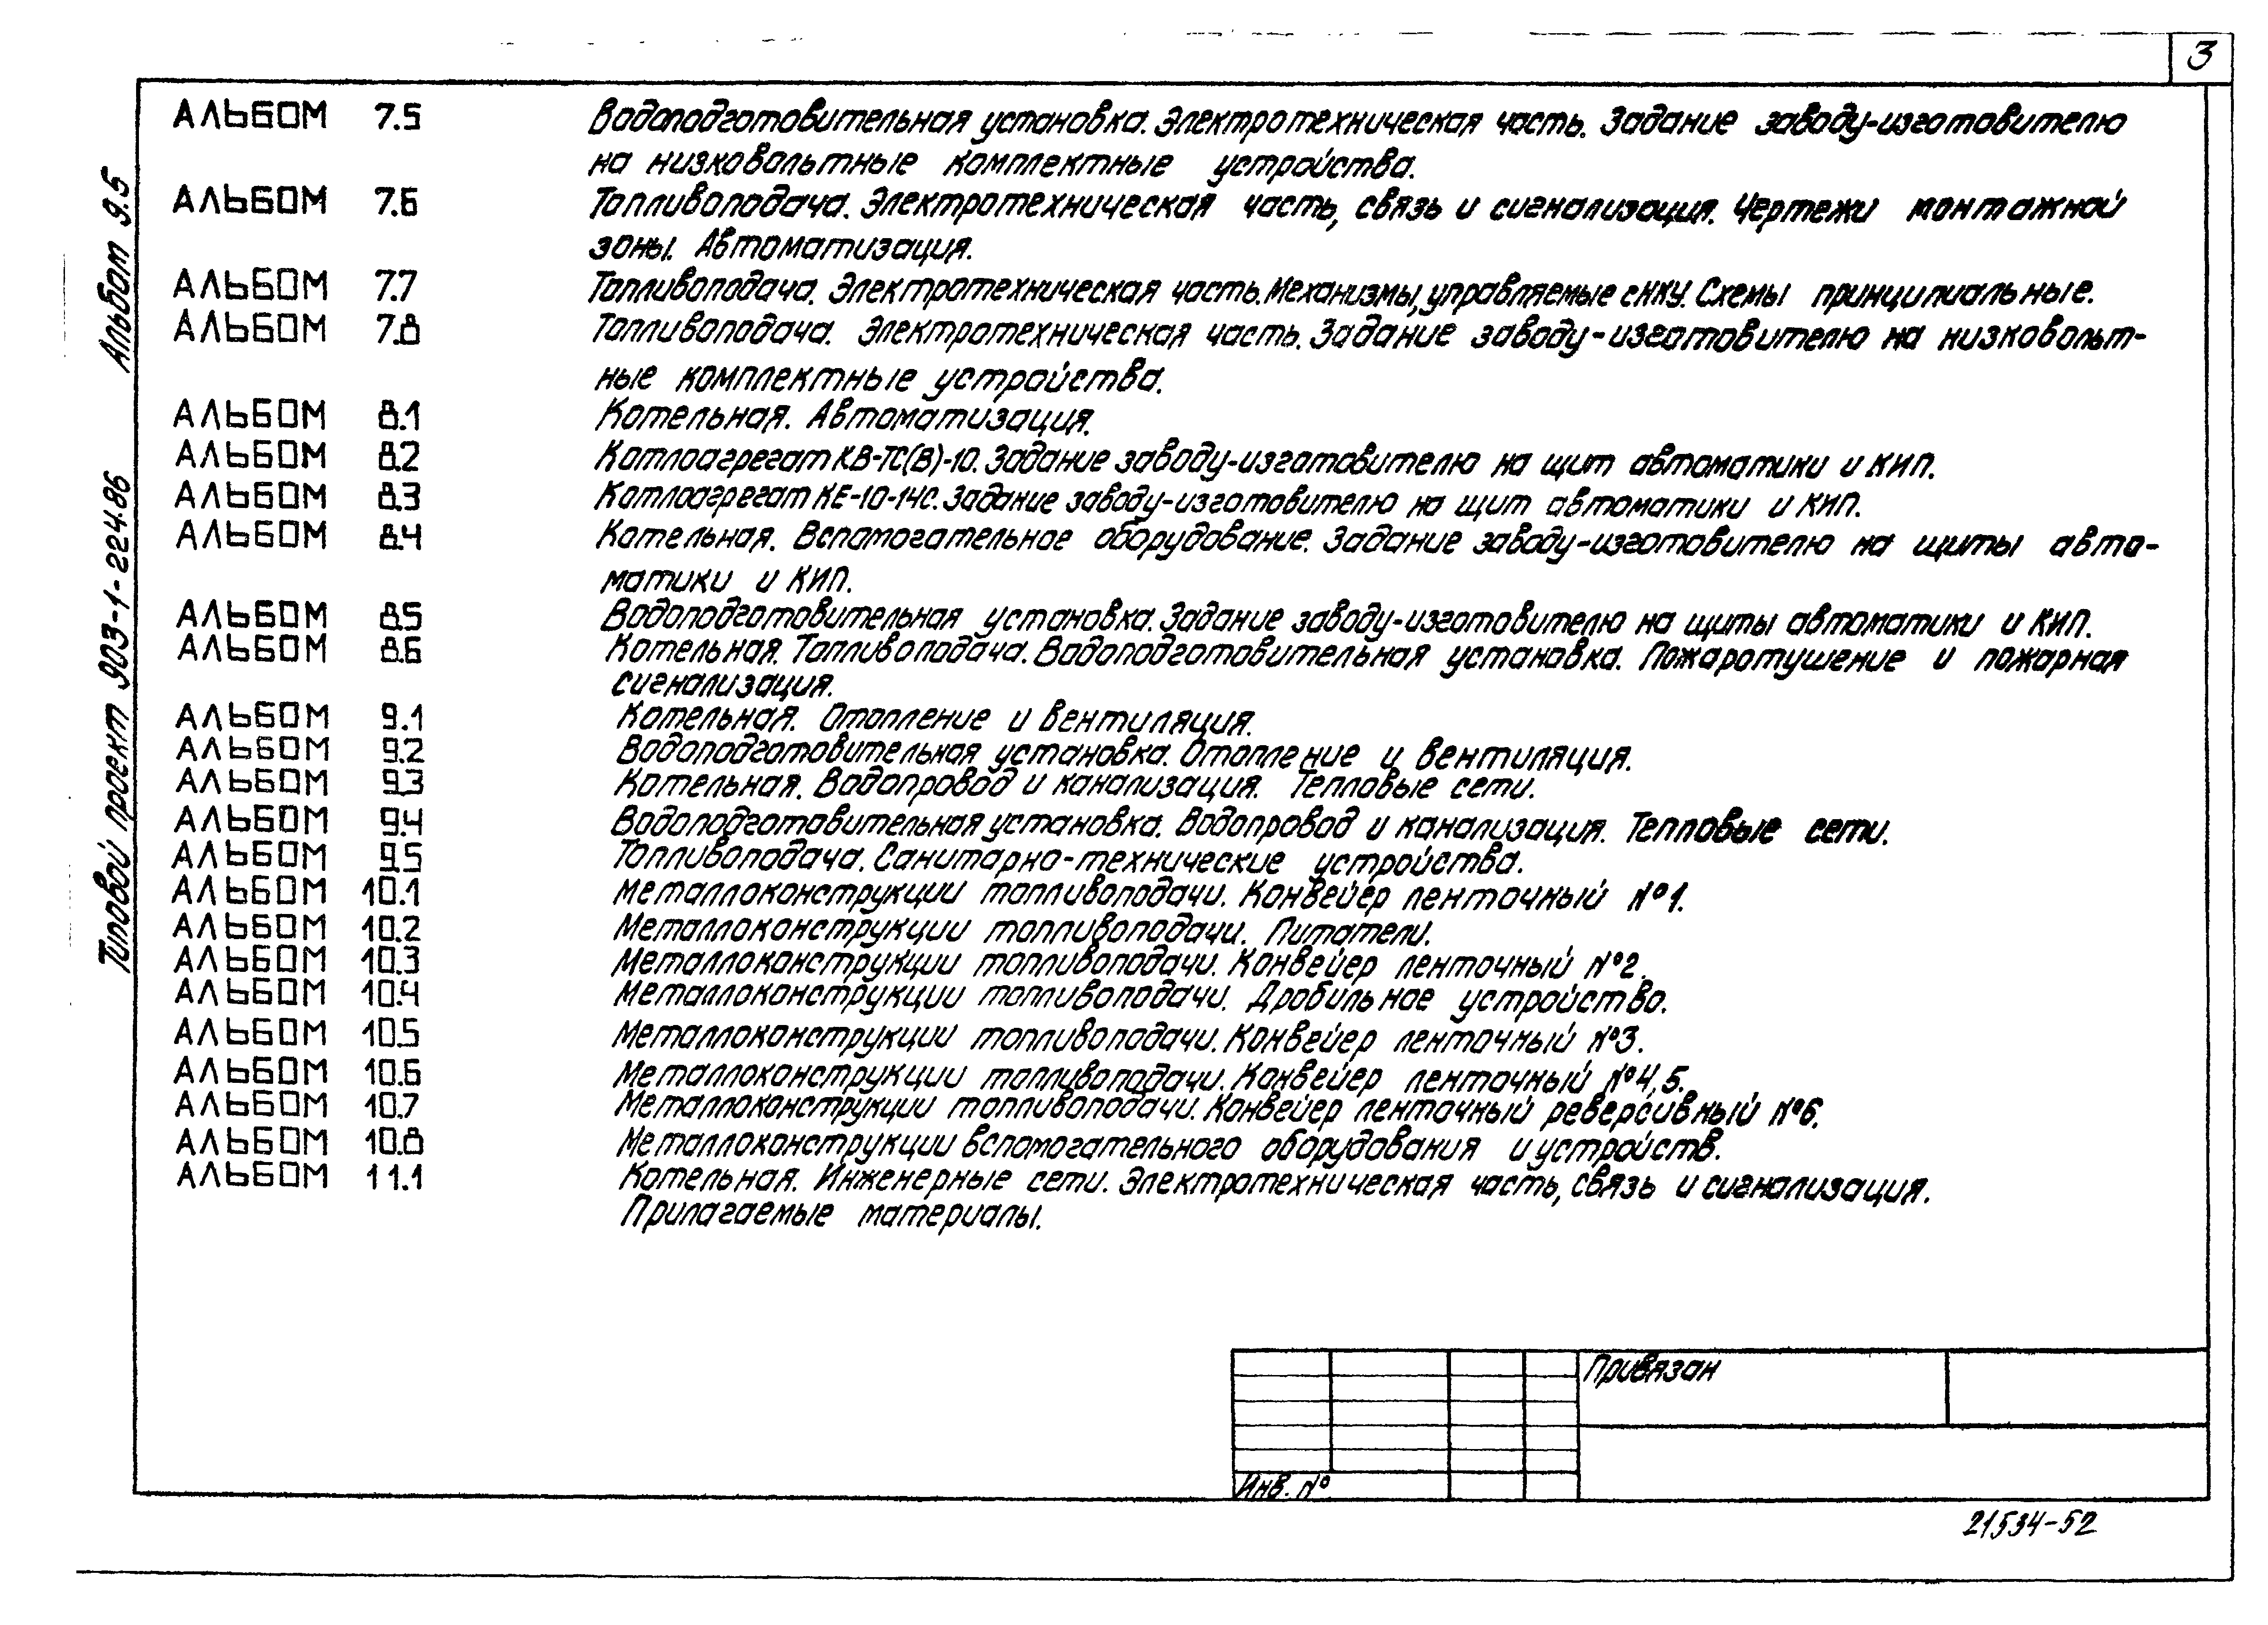 3
АЛЬБОМ 7.5 Водоподготовительная установка. Электротехническая часть. Задание заводу-изготовителю
на низковольтные комплектные устройства.
АЛЬБОМ 7.6 Топливоподача. Электротехническая часть, связь и сигнализация. Чертежи монтажной
зоны. Автоматизация.
АЛЬБОМ 7.7 Топливоподача. Электротехническая часть. Механизмы, управляемые с НКУ. Схемы принципиальные.
АЛЬБОМ 7.8 Топливоподача. Электротехническая часть. Задание заводу-изготовителю на низковольт-
ные комплектные устройства.
АЛЬБОМ 8.1 Котельная. Автоматизация.
АЛЬБОМ 8.2 Котлоагрегат КВ-ТС(В)-10. Задание заводу-изготовителю на щит автоматики и КИП.
АЛЬБОМ 8.3 Котлоагрегат КЕ-10-14С. Задание заводу-изготовителю на щит автоматики и КИП.
АЛЬБОМ 8.4 Котельная. Вспомогательное оборудование. Задание заводу-изготовителю на щиты авто-
матики и КИП.
АЛЬБОМ 8.5 Водоподготовительная установка. Задание заводу-изготовителю на щиты автоматики и КИП.
АЛЬБОМ 8.6 Котельная. Топливоподача. Водоподготовительная установка. Пожаротушение и пожарная
сигнализация.
АЛЬБОМ 9.1 Котельная. Отопление и вентиляция.
АЛЬБОМ 9.2 Водоподготовительная установка. Отопление и вентиляция.
АЛЬБОМ 9.3 Котельная. Водопровод и канализация. Тепловые сети.
АЛЬБОМ 9.4 Водоподготовительная установка. Водопровод и канализация. Тепловые сети.
АЛЬБОМ 9.5 Топливоподача. Санитарно-технические устройства.
АЛЬБОМ 10.1 Металлоконструкции топливоподачи. Конвейер ленточный №1.
АЛЬБОМ 10.2 Металлоконструкции топливоподачи. Питатели.
АЛЬБОМ 10.3 Металлоконструкции топливоподачи. Конвейер ленточный №2.
АЛЬБОМ 10.4 Металлоконструкции топливоподачи. Дробильное устройство.
АЛЬБОМ 10.5 Металлоконструкции топливоподачи. Конвейер ленточный №3.
АЛЬБОМ 10.6 Металлоконструкции топливоподачи. Конвейер ленточный №4,5.
АЛЬБОМ 10.7 Металлоконструкции топливоподачи. Конвейер ленточный реверсивный №6.
АЛЬБОМ 10.8 Металлоконструкции вспомогательного оборудования и устройств.
АЛЬБОМ 11.1 Котельная. Инженерные сети. Электротехническая часть, связь и сигнализация.
Прилагаемые материалы.
Типовой проект 903-1-224.86 Альбом 9.5
Привязан
Инв. №
21534-52